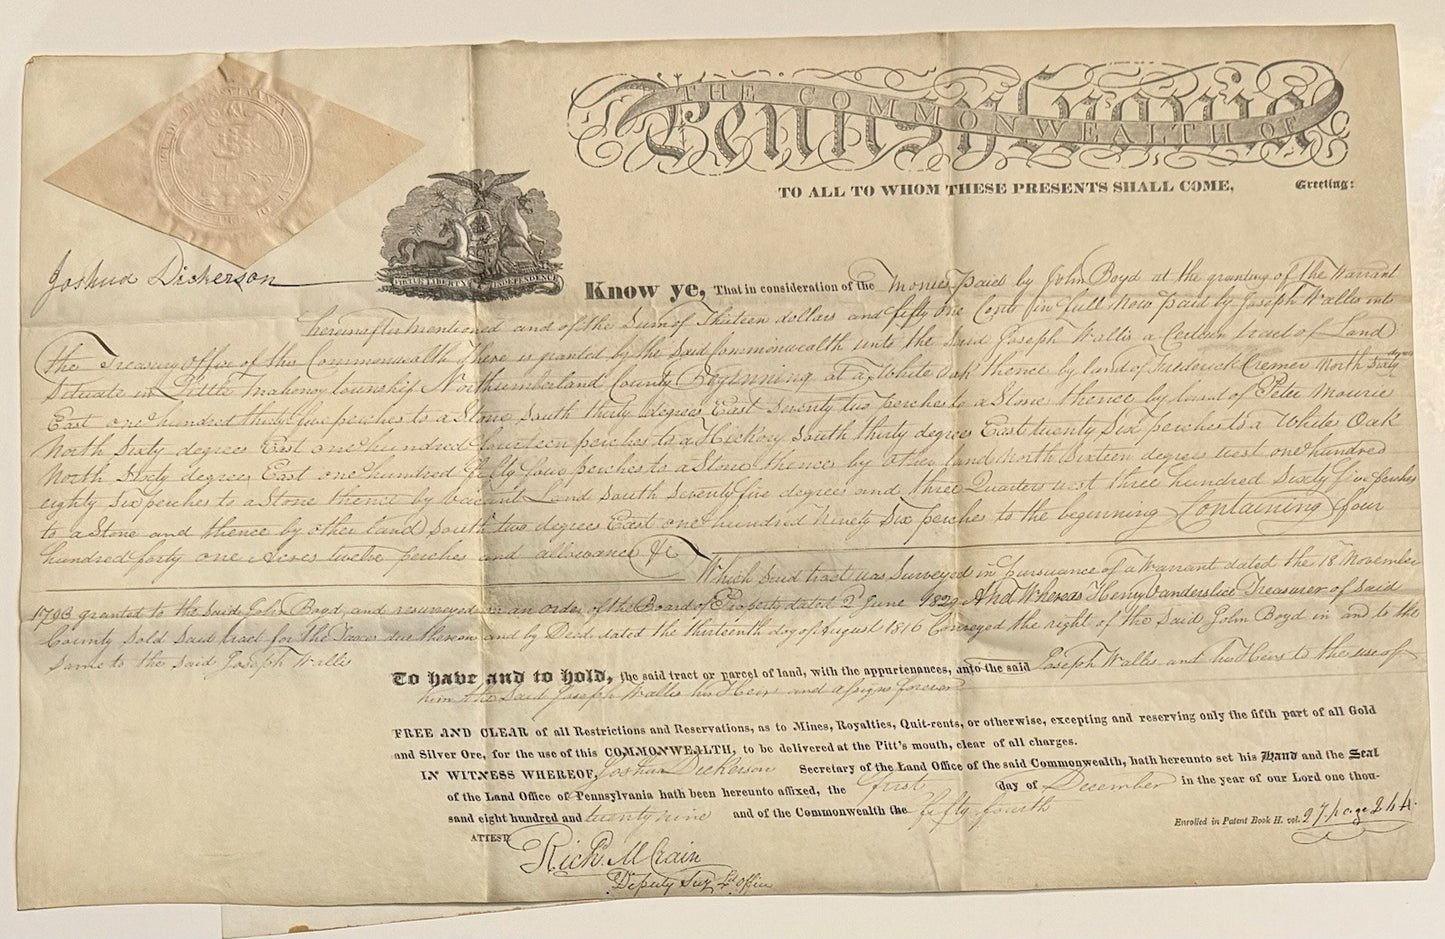 THE COMMONWEALTH OF
Pennsylvania
TO ALL TO WHOM THESE PRESENTS SHALL COME, Greeting:
Joshua Dickerson
VIRTUE LIBERTY INDEPENDENCE
Know ye, That in consideration of the Monies paid by John Boyd at the granting of the Warrant
hereinafter mentioned and of the Sum of Thirteen dollars and fifty one Cents in full Now paid by Joseph Wallis into
the Treasury Office of this Commonwealth There is granted by the said Commonwealth unto the said Joseph Wallis a Certain tract of Land
Situate in Little Mahenoy township Northumberland County Beginning at a White Oak thence by land of Frederick Cremer North Sixty degrees
East one hundred thirty five perches to a Stone South thirty degrees East Seventy two perches to a Stone thence by land of Peter Mourie
North Sixty degrees East one hundred fourteen perches to a Hickory South thirty degrees East twenty Six perches to a White Oak
North Sixty degrees East one hundred fifty four perches to a Stone thence by other land North Sixteen degrees west one hundred
eighty Six perches to a Stone thence by Vacant Land South Seventy five degrees and three Quarters west three hundred Sixty five perches
to a Stone and thence by other land South two degrees East one hundred Ninety Six perches to the beginning Containing four
hundred forty one Acres twelve perches and allowance &c
Which Said tract was Surveyed in pursuance of a Warrant dated the 18 November
1793 granted to the said John Boyd, and resurveyed on an order of the Board of Property dated 2d June 1829 And Whereas Henry Vanderslice Treasurer of said
County Sold said tract for the Taxes due thereon and by Deed dated the thirteenth day of August 1816 Conveyed the right of the said John Boyd in and to the
Same to the said Joseph Wallis
To have and to hold, the said tract or parcel of land, with the appurtenances, unto the said Joseph Wallis and his Heirs to the use of
him the said Joseph Wallis his Heirs and assigns forever
FREE AND CLEAR of all Restrictions and Reservations, as to Mines, Royalties, Quit-rents, or otherwise, excepting and reserving only the fifth part of all Gold
and Silver Ore, for the use of this COMMONWEALTH, to be delivered at the Pitt's mouth, clear of all charges.
IN WITNESS WHEREOF, Joshua Dickerson Secretary of the Land Office of the said Commonwealth, hath hereunto set his Hand and the Seal
of the Land Office of Pennsylvania hath been hereunto affixed, the first day of December in the year of our Lord one thou-
sand eight hundred and twenty nine and of the Commonwealth the fifty fourth
ATTEST,
Enrolled in Patent Book H. vol. 27. page 244.
Richd. M Crain
Deputy Secy Ld Office